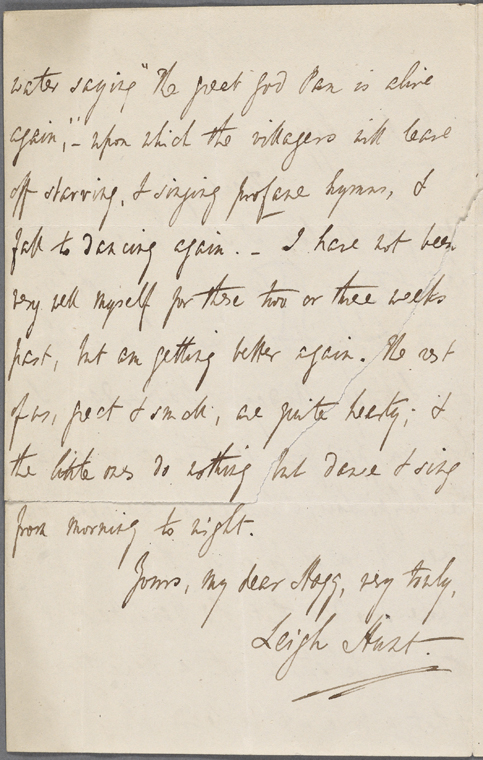 water saying "The great God Pan is alive
again," – upon which the villagers will leave
off starving, & singing profane hymns, &
fall to dancing again. – I have not been
very well myself for these two or three weeks
past, but am getting better again. The rest
of us, great & small, are quite hearty; &
the little ones do nothing but dance & sing
from morning to night.
Yours, my dear Hogg, very truly,
Leigh Hunt.